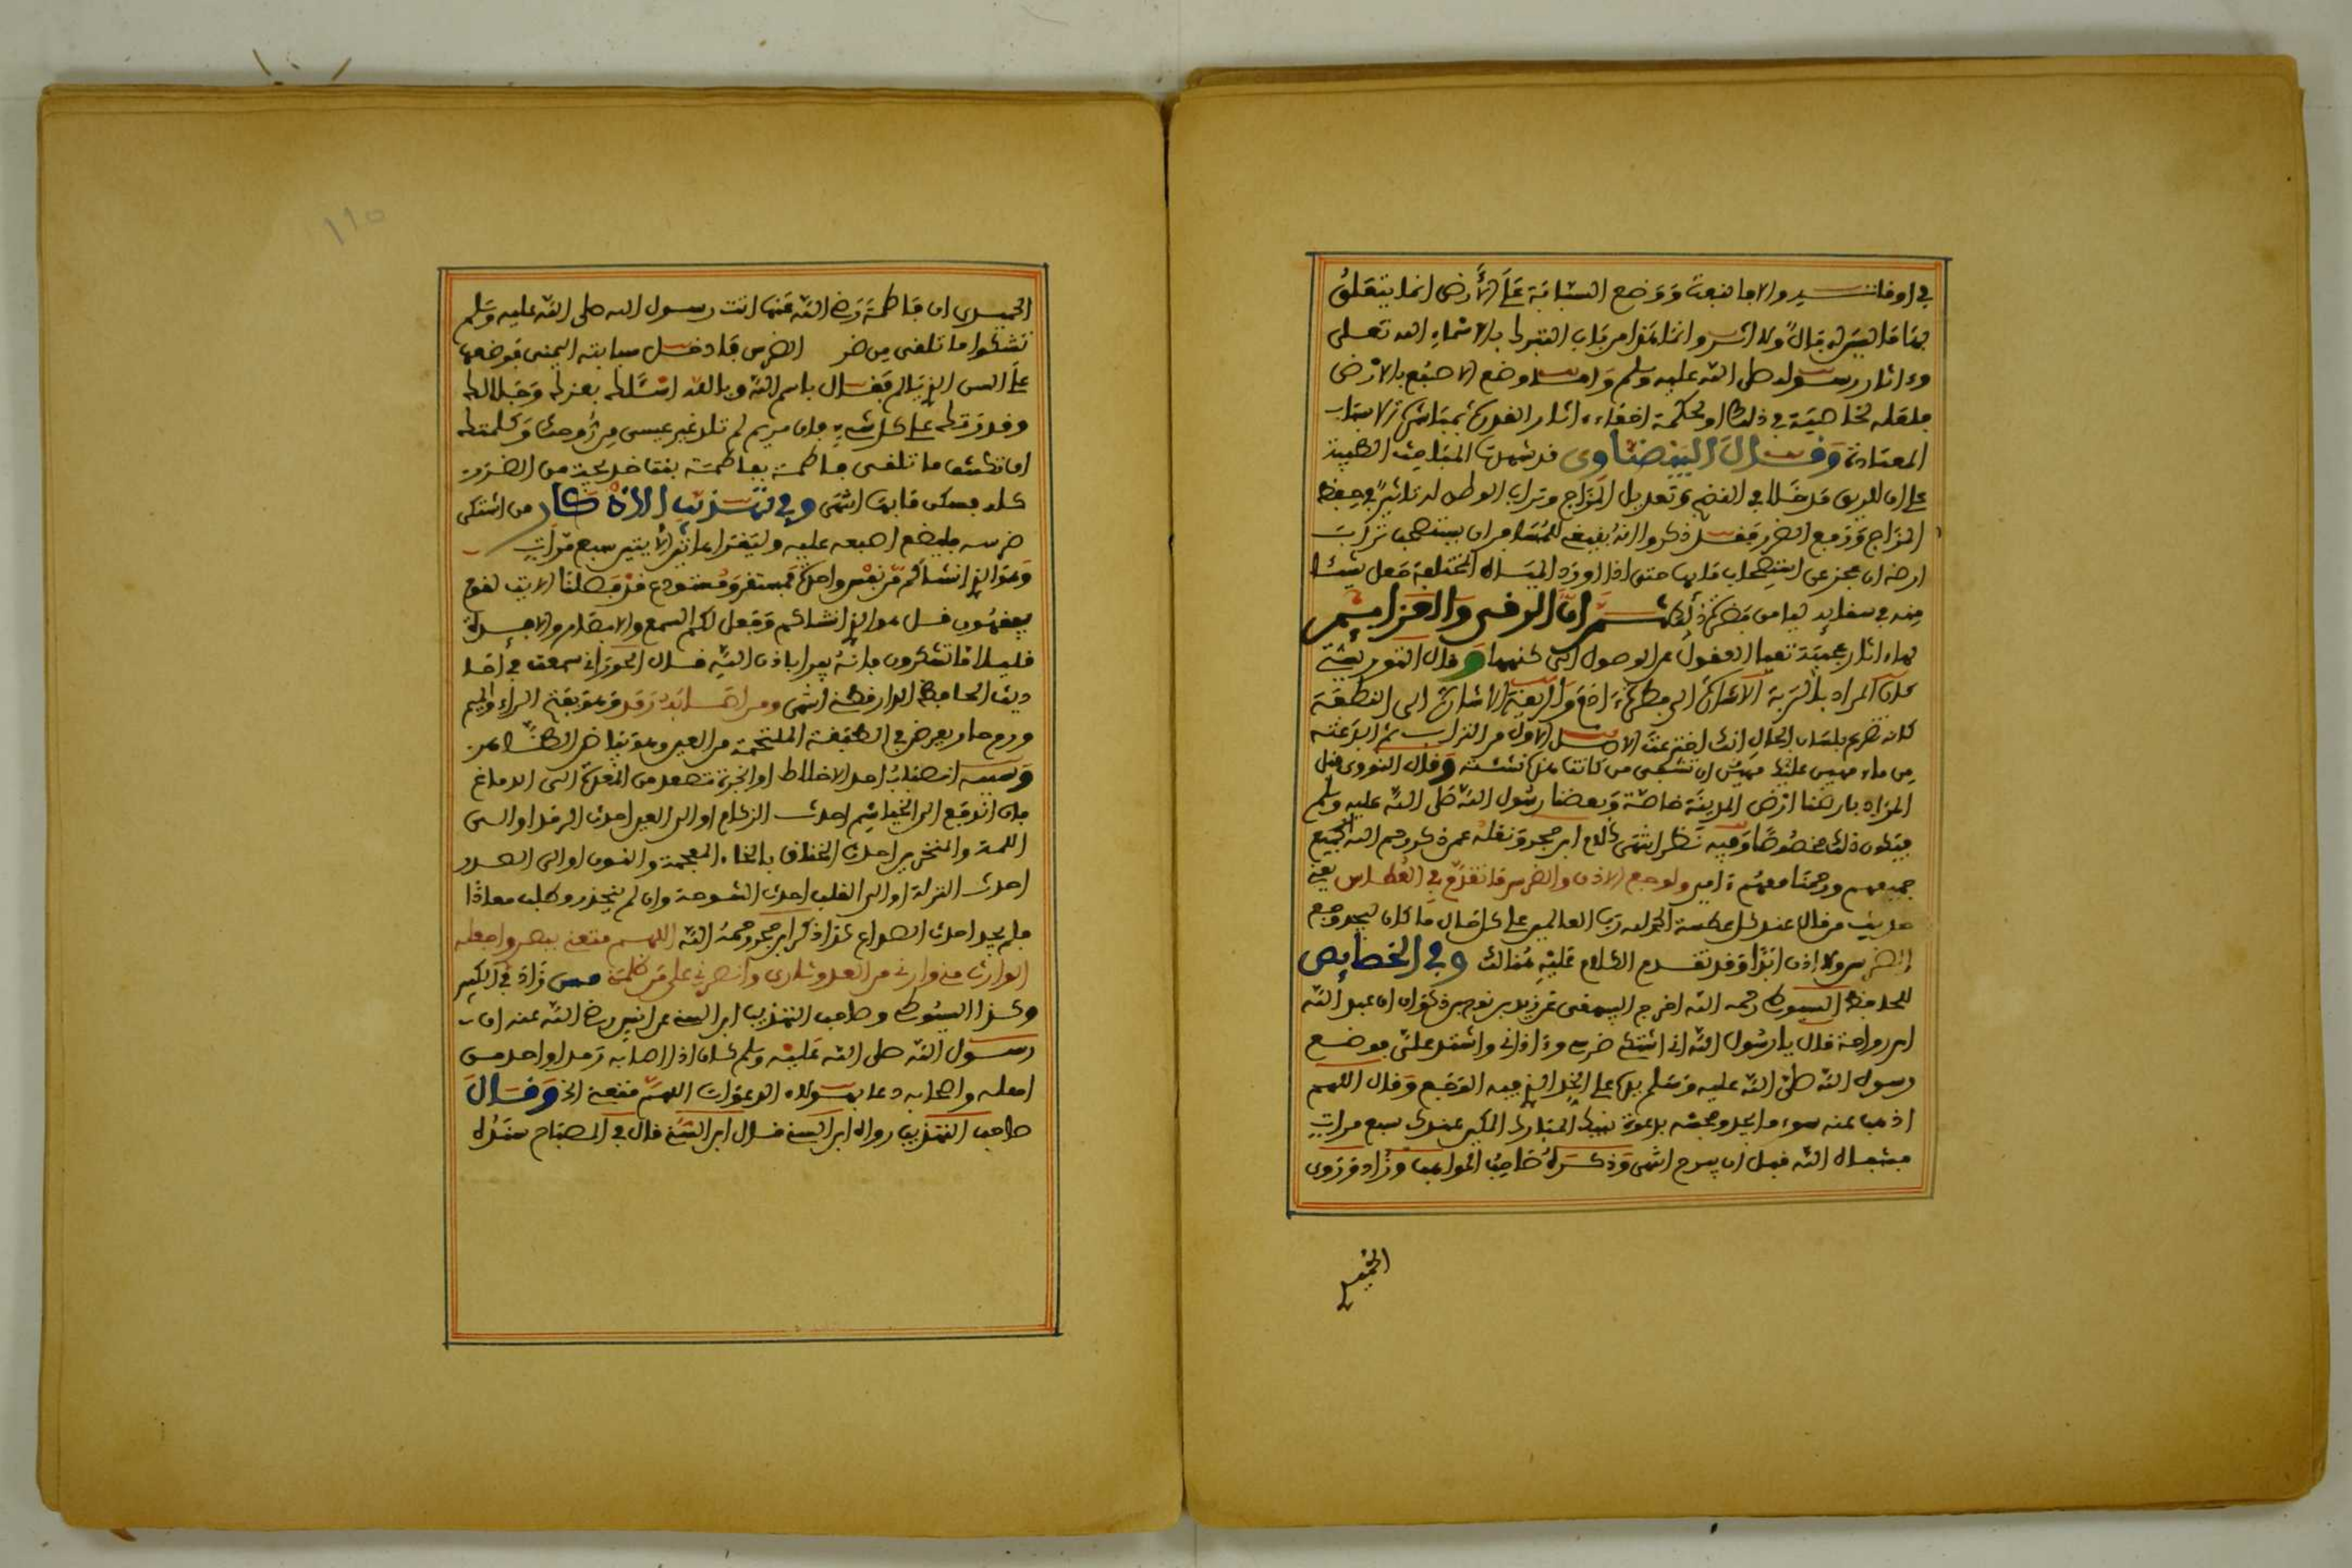 في اوقات يسير والا ما نبعت ووضع السبابة على الأرض انما يتعلق
بها ما ليس له بال ولا اثر وانما هذا من باب التبرك بالاسماء الله تعلى
وءاثار رسوله صلى الله عليه وسلم واما وضع الاصبع بالارض
فلعله لخاصية في ذلك او لحكمة اخفاء ءاثار القدرة بمباشرة الاسباب
المعتادة وقال البيضاوي قد شهدت المباحث الطبية
على ان للريق مدخلا في النضج وتعديل المزاج وتراب الوطن له تاثير في حفظ
المزاج ودفع الضرر فقد ذكروا انه ينبغي للمسافر ان يستصحب تراب
ارضه ان عجز عن استصحاب مايها حتى اذا اورد المياه المختلفة جعل شيئا
منه في سقايه ليامن مضرة ذلك ثم ان الرقى والعزايم
لها ءاثار عجيبة تتقاعد العقول عن الوصول الى كنهها وقال التوربشتي
كان المراد بالتربة الاشارة الى فطرة ءادم والريقة الاشارة الى النطفة
كانه تضرع بلسان الحال انك اخترعت الاصل الاول من التراب ثم ابدعته
من ماء مهين عليك ان تشفي من كانت هذه نشئته وقال النووي قيل
المراد بارضنا ارض المدينة خاصة وبعضنا رسول الله صلى الله عليه وسلم
فيكون ذلك مخصوصا وفيه نظر انتهى كلام ابن حجر ونقله عمن ذكر رحم الله الجميع
جميعهم ورحمنا معهم ءامين ولوجع الاذن والضرس ما تقدم في العطاس يعني
حديث من قال عند كل عطسة الحمد لله رب العالمين على كل حال ما كان لم يجد وجع
الضرس ولا اذن ابدا وقد تقدم الكلام عليه هنالك وفي الخصايص
للحافظ السيوطي رحمه الله اخرج البيهقي عن يزيد بن نوح بن ذكوان ان عبد الله
ابن رواحة قال يا رسول الله اني اشتكي ضرسي ءاذاني واشتد علي فوضع
رسول الله صلى الله عليه وسلم يده على الخد الذي فيه الوجع وقال اللهم
اذهب عنه سوء ما يجد وفحشه بدعوة نبيك المبارك المكين عندك سبع مرات
فشفاه الله قبل ان يبرح انتهى وذكره صاحب المواهب وزاد وروى
الحميدي
الحميدي ان فاطمة رضي الله عنها اتت رسول الله صلى الله عليه وسلم
تشكوا ما تلقى من ضر الضرس فادخل سبابته اليمنى فوضعها
على السن الذي تالم فقال باسم الله وبالله اسئلك بعزك وجلالك
وقدرتك على كل شيء فان مريم لم تلد غير عيسى من روحك وكلمتك
ان تكشف ما تلقى فاطمة بفاطمة بنت خديجة من الضر
كله فسكن ما بها انتهى وفي تهذيب الاذكار من اشتكى
ضرسه فليضع اصبعه عليه وليقرا هاتين الايتين سبع مرات
وهو الذي انشاكم من نفس واحدة فمستقر ومستودع قد فصلنا الايت لقوم
يفقهون قل هو الذي انشاكم وجعل لكم السمع والابصار والافدة
قليلا ما تشكرون فانه يبرا باذن الله قال الجوزاني سمعت في احا
ديث الحافظ الدارقطني انتهى ومن اصابه رمد وهو بفتح الراء والميم
ورم حار يعرض في الطبقة الملتحمة من العين وهو بياضها الظاهر
وسببه انصباب احد الاخلاط او ابخرة تصعد من المعدة الى الدماغ
فان اندفع الى الخياشيم احدث الزكام او الى العين احدث الرمد او الى
اللهة والمنخرين احدث الخناق بالخاء المعجمة والنون او الى الصدر
احدث النزلة او الى القلب احدث الشوصة وان لم ينحدر وطلب معاذا
فلم يجد احدث الصداع كذا ذكر ابن حجر رحمه الله اللهم متعني ببصري واجعله
الوارث مني وارني من العدو ثاري وانصرني على من ظلمني مس زاد في الكبير
وكذا السيوطي وصاحب التهذيب ابن السني عن انس رضي الله عنه ان
رسول الله صلى الله عليه وسلم كان اذا اصابه رمد او احد من
اهله واصحابه دعا بهؤلاء الدعوات اللهم متعني الخ وقال
صاحب التهذيب رواه ابن السني قال ابن السني قال في المصباح
١١٥